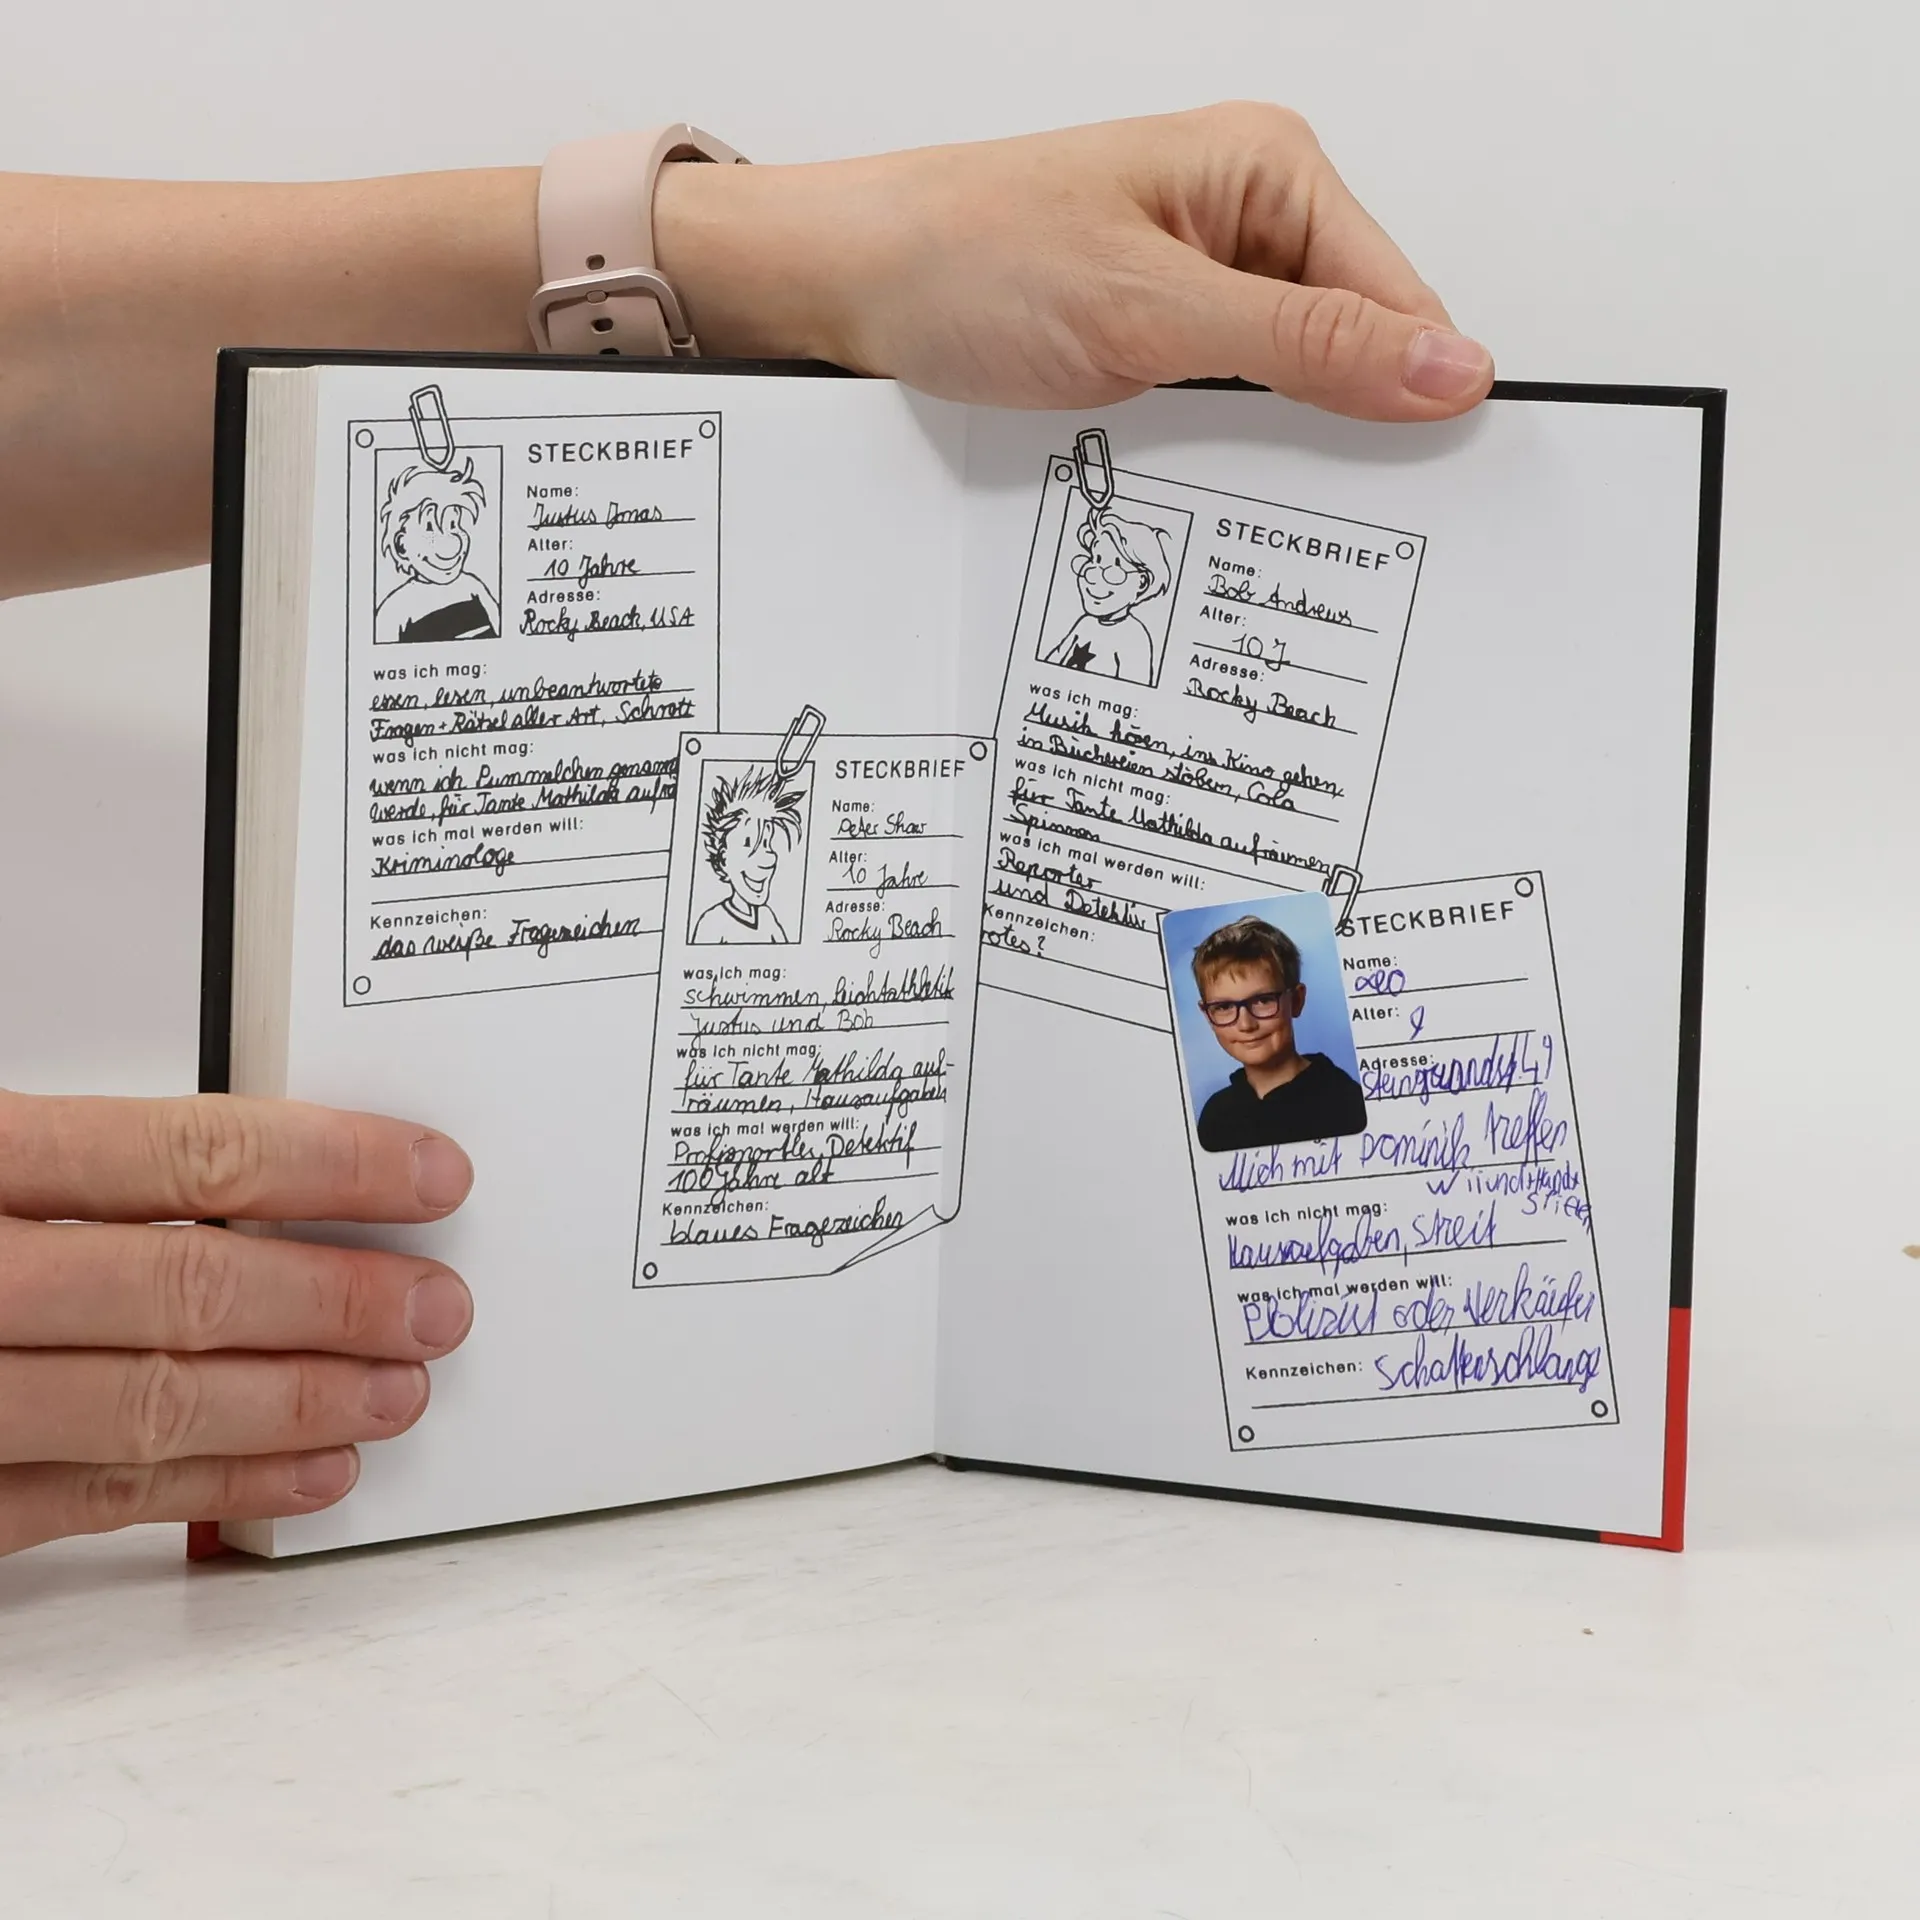 STECKBRIEF
Name:
Justus Jonas
Alter:
10 Jahre
Adresse:
Rocky Beach, USA
was ich mag:
essen, lesen, unbeantwortete
Fragen + Rätsel aller Art, Schrott
was ich nicht mag:
wenn ich Pummelchen genannt
werde, für Tante Mathilda aufrä
was ich mal werden will:
Kriminologe
Kennzeichen:
das weiße Fragezeichen
STECKBRIEF
Name:
Peter Shaw
Alter:
10 Jahre
Adresse:
Rocky Beach
was ich mag:
schwimmen, Leichtathletik
Justus und Bob
was ich nicht mag:
für Tante Mathilda auf-
räumen, Hausaufgaben
was ich mal werden will:
Profisportler, Detektif
100 Jahre alt
Kennzeichen:
blaues Fragezeichen
STECKBRIEF
Name:
Bob Andrews
Alter:
10 J
Adresse:
Rocky Beach
was ich mag:
Musik hören, ins Kino gehen,
in Büchereien stöbern, Cola
was ich nicht mag:
für Tante Mathilda aufräumen
Spinnen
was ich mal werden will:
Reporter
und Detektiv
Kennzeichen:
rotes ?
STECKBRIEF
Name:
Leo
Alter:
9
Adresse:
Mich mit Dominik treffen
was ich nicht mag:
Hausaufgaben, Streit
was ich mal werden will:
Polizist oder Verkäufer
Kennzeichen: Schattenschlange